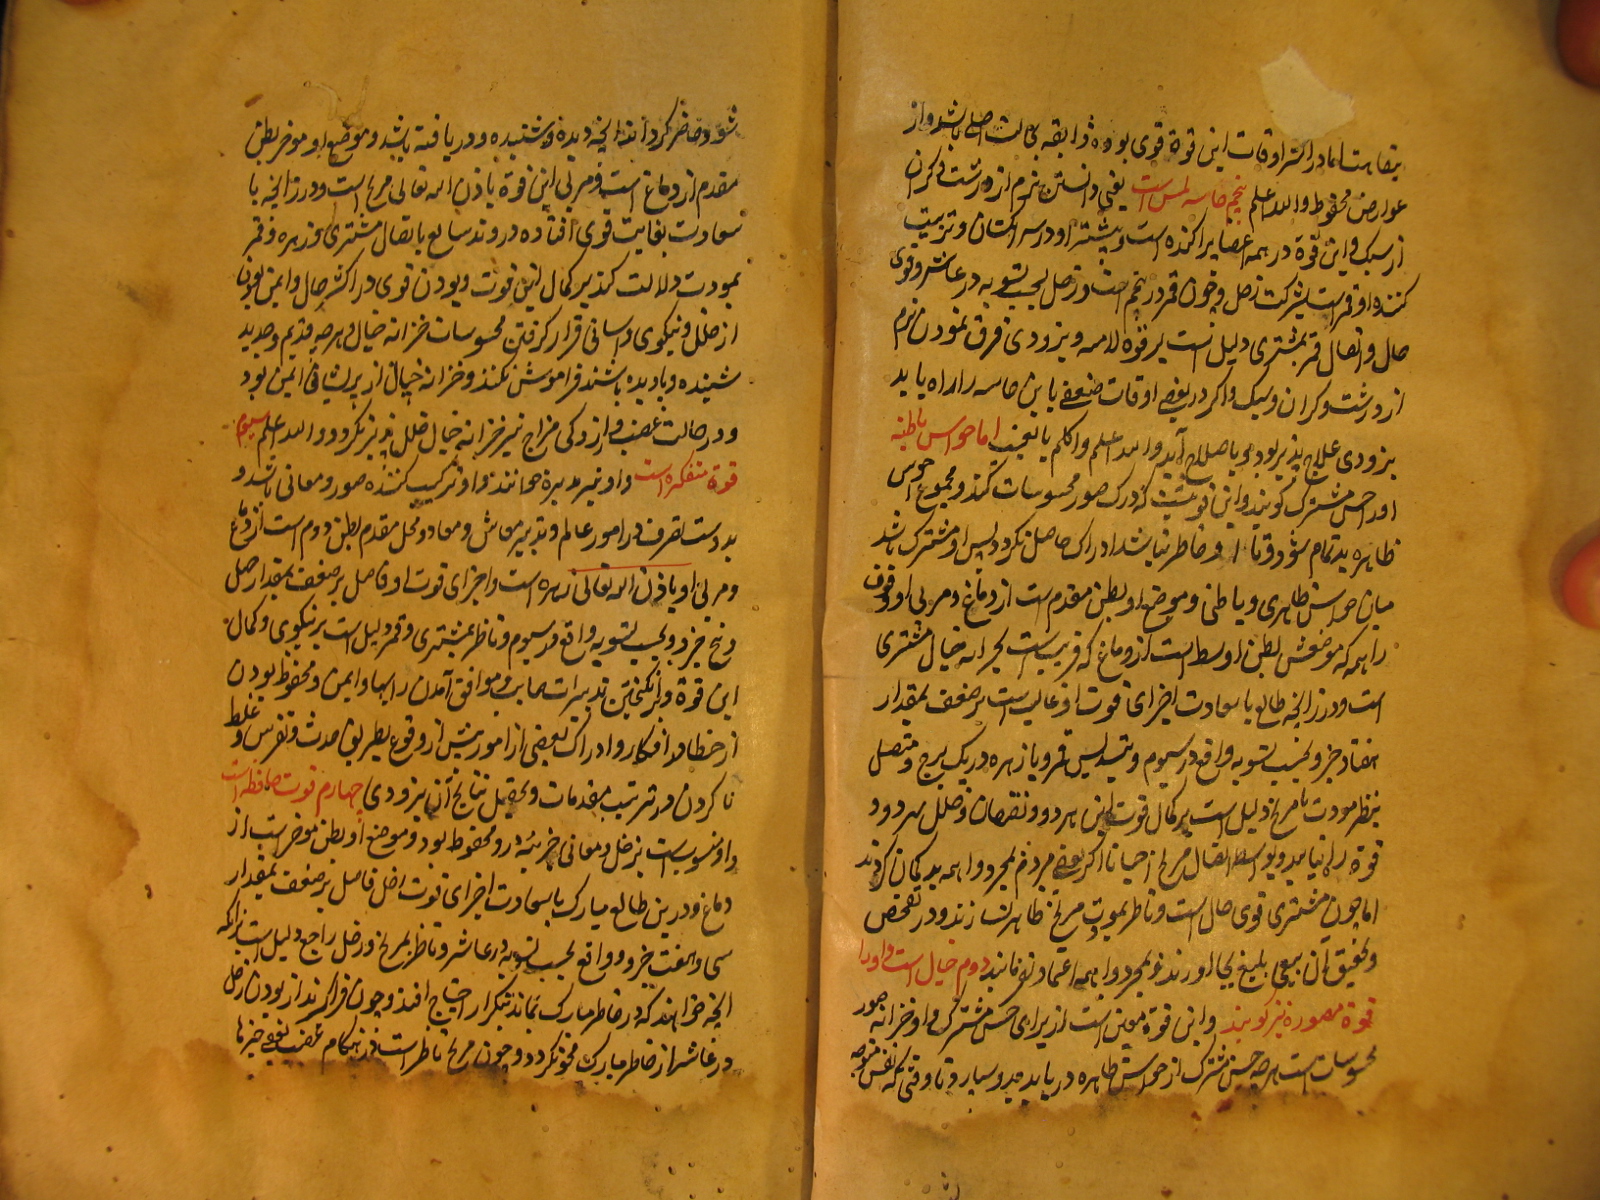 بنقاهت اما در اکثر اوقات این قوة قوی بوده و ذایقه بحالت اصلی باشد و از
عوارض محفوظ والله اعلم پنجم حاسه لمس است یعنی دانستن نرم از درشت و گران
از سبک و این قوة در همه اعضا پراکنده است و بیشتر او در سر انگشتان و تربیت
کننده او قمر است بشرکت زحل و چون قمر در پنجم است و زحل بحسب تسویه در عاشر و قوی
حال و اتصال قمر بمشتری دلیل است بر قوة لامسه و بزودی فرق نمودن نرم
از درشت و گران و سبک و اگر در بعضی اوقات ضعفی باین حاسه راه یابد
بزودی علاج پذیر بود و باصلاح آید والله اعلم واحکم بالغیب اما حواس باطنه
اول حس مشترک گویند و این قوتیست که درک صور محسوسات کند و مجموع حواس
ظاهره بد تمام شود و تا او حاضر نباشد ادراک حاصل نگردد پس او مشترک باشد
میان حواس ظاهری و باطنی و موضع او بطن مقدم است از دماغ و مربی او و قوة
واهمه که موضعش بطن اوسط است از دماغ که قریب است بخزانه خیال مشتری
است و در زایجه طالع با سعادت اجزای قوت او غالب است بر ضعف بمقدار
هفتاد جزو و بحسب تسویه واقع در سیوم و بتسدیس قمر و با زهره در یک برج و متصل
بنظر مودت با مریخ دلیل است بر کمال قوت این هر دو و نقصان و خلل بهر دو
قوة راه نیابد و بواسطه اتصال مریخ احیانا اگر بعضی مردم بمجرد واهمه بد گمان گردند
اما چون مشتری قوی حال است و ناظر بمودت مریخ ظاهر نسازند و در تفحص
و تحقیق آن سعی بلیغ بجا آورند و بمجرد واهمه اعتماد نفرمایند دوم خیال است و او را
قوة مصوره نیز گویند و این قوة معین است از برای حس مشترک و او خزانه صور
محسوسات است هرچه حس مشترک از حواس ظاهره دریابد بدو سپارد تا وقتی که نفس متوجه
شود حاضر گرداند آنچه دیده و شنیده و دریافته باشد و موضع او موخر بطن
مقدم از دماغ است و مربی این قوة باذن الله تعالی مریخ است و در زایجه با
سعادت بغایت قوی افتاده در وتد سابع با تصال مشتری و زهره و قمر
بمودت دلالت کند بر کمال این قوت و بودن قوی در اکثر حال و ایمن بودن
از خلل و نیکوی و اسانی قرار گرفتن محسوسات خزانه خیال و هرچه قدیم و جدید
شنیده و یا دیده باشند فراموش نکنند و خزانه خیال از پریشانی ایمن بود
و در حالت غضب و ازدگی مزاج نیز خزانه خیال خلل پذیر نگردد والله اعلم سیوم
قوة متفکره است و او نیز مدبره خوانند و او ترکیب کننده صور و معانی باشد و
بدوست تصرف در امور عالم و تدبیر معاش و معاد و محل مقدم بطن دوم است از دماغ
و مربی او باذن الله تعالی زهره است و اجزای قوت او فاضل بر ضعف بمقدار چهل
و پنج جزو و بحسب تسویه واقع در سیوم و ناظر بمشتری و قمر دلیل است بر نیکوی و کمال
این قوة و برانگیختن تدبیرات صایب و موافق آمدن رایها و ایمن و محفوظ بودن
از خطا در افکار و ادراک بعضی از امور پیش از وقوع بطریق حدس و تفرس و غلط
نا کردن در ترتیب مقدمات و تحصیل نتایج آن بزودی چهارم قوت حافظه است
و او منسوبست بزحل و معانی جزئیه در و محفوظ بود و موضع او بطن موخر است از
دماغ و درین طالع مبارک با سعادت اجزای قوت زحل فاضل بر ضعف بمقدار
سی و هفت جزو و واقع بحسب تسویه در عاشر و ناظر بمریخ و زحل راجع دلیل است بر آنکه
آنچه خواهند که در خاطر مبارک بماند بتکرار احتیاج افتد و چون فرا گیرند از بودن زحل
در عاشر از خاطر مبارک محو نگردد و چون مریخ ناظر است در هنگام غضب بعضی چیزها